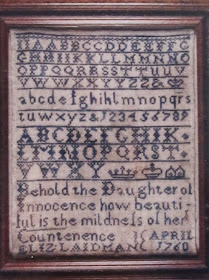 AABBCCDDEEFFG
GHHIIKKLLMMNNO
OPPQQRRSSTTUUV
VWWXXYYZZ&
abcdefghiklmnopqrs
tuwxyz&123456789
ABCDEFGHIK
LMNOPQRST
VWXY
Behold the Daughter of
Innocence how beauti
ful is the mildness of her
Countenence APRIL
ELIZ LAIDMAN 1760